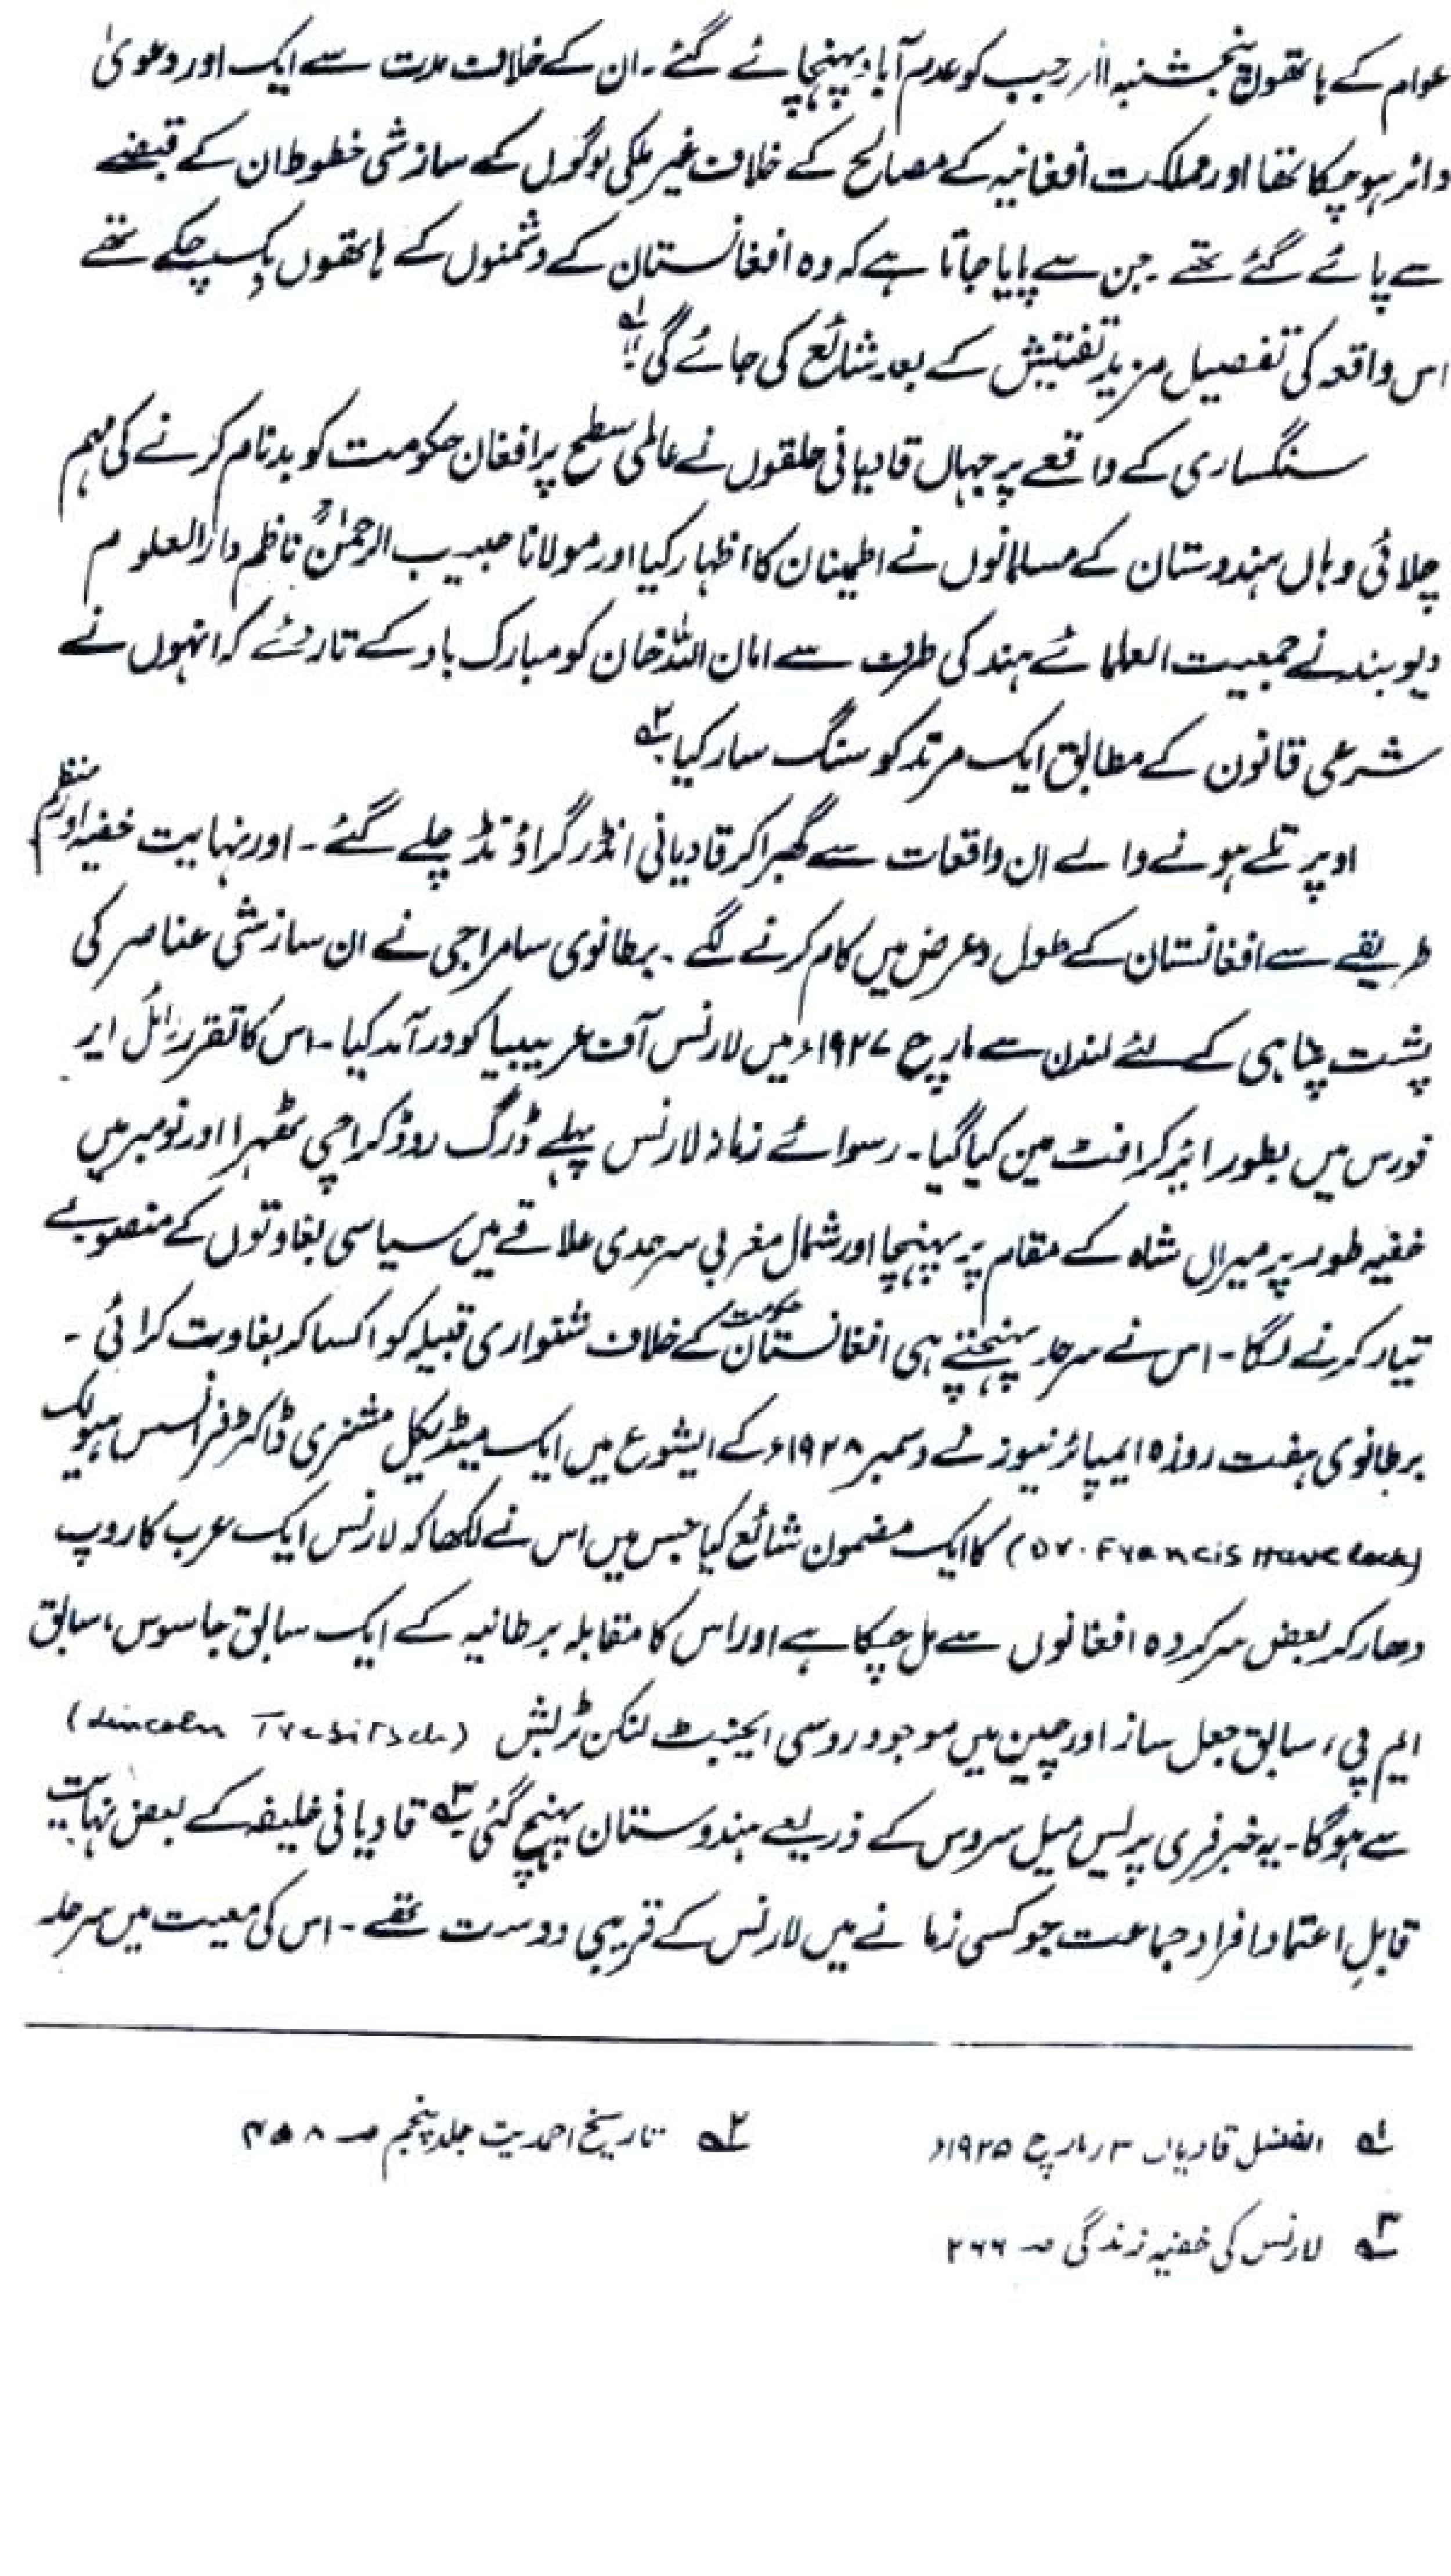 عوام کے ہاتھوں پنجشنبہ ۱۱ر رجب کو عدم آباد پہنچائے گئے۔ ان کے خلاف مدت سے ایک اور دعویٰ
دائر ہو چکا تھا اور مملکت افغانیہ کے مصالح کے خلاف غیر ملکی لوگوں کے سازشی خطوط ان کے قبضے
سے پائے گئے تھے۔ جن سے پایا جاتا ہے کہ وہ افغانستان کے دشمنوں کے ہاتھوں بک چکے تھے
اس واقعہ کی تفصیل مزید تفتیش کے بعد شائع کی جائے گی"؎۱
سنگساری کے واقعے پر جہاں قادیانی حلقوں نے عالمی سطح پر افغان حکومت کو بدنام کرنے کی مہم
چلائی وہاں ہندوستان کے مسلمانوں نے اطمینان کا اظہار کیا اور مولانا حبیب الرحمٰنؒ ناظم دارالعلوم
دیوبند نے جمعیت العلمائے ہند کی طرف سے امان اللہ خان کو مبارک باد کے تار دئے کہ انہوں نے
شرعی قانون کے مطابق ایک مرتد کو سنگ سار کیا ؎۲
اوپر تلے ہونے والے ان واقعات سے گھبرا کر قادیانی انڈر گراؤنڈ چلے گئے۔ اور نہایت خفیہ اور منظم
طریقے سے افغانستان کے طول و عرض میں کام کرنے لگے۔ برطانوی سامراجی نے ان سازشی عناصر کی
پشت پناہی کے لئے لندن سے مارچ ۱۹۲۷ء میں لارنس آف عریبیا کو درآمد کیا۔ اس کا تقرر رائل ایر
فورس میں بطور ائیر کرافٹ مین کیا گیا۔ رسوائے زمانہ لارنس پہلے ڈرگ روڈ کراچی ٹھہرا اور نومبر میں
خفیہ طور پر میراں شاہ کے مقام پر پہنچا اور شمال مغربی سرحدی علاقے میں سیاسی بغاوتوں کے منصوبے
تیار کرنے لگا۔ اس نے سرحد پہنچتے ہی افغانستان حکومت کے خلاف شنواری قبیلہ کو اکسا کر بغاوت کرائی۔
برطانوی ہفت روزہ ایمپائر نیوز نے دسمبر ۱۹۲۸ء کے ایشوع میں ایک میڈیکل مشنری ڈاکٹر فرانسس ہیولک
(Dr. Francis Havelock) کا ایک مضمون شائع کیا جس میں اس نے لکھا کہ لارنس ایک عرب کا روپ
دھار کر بعض سرکردہ افغانوں سے مل چکا ہے اور اس کا مقابلہ برطانیہ کے ایک سابق جاسوس، سابق
ایم پی، سابق جعل ساز اور چین میں موجود روسی ایجنٹ لنکن ٹربش (Lincoln Trebitsch)
سے ہوگا۔ یہ خبر فری پریس میل سروس کے ذریعے ہندوستان پہنچ گئی ؎۳ قادیانی خلیفہ کے بعض نہایت
قابلِ اعتماد افراد جماعت جو کسی زمانے میں لارنس کے قریبی دوست تھے۔ اس کی معیت میں سرحد
؎۱ الفضل قادیاں ۳ر مارچ ۱۹۲۵ء ؎۲ تاریخ احمدیت جلد پنجم صـ ۴۵۸
؎۳ لارنس کی خفیہ زندگی صـ ۲۶۶